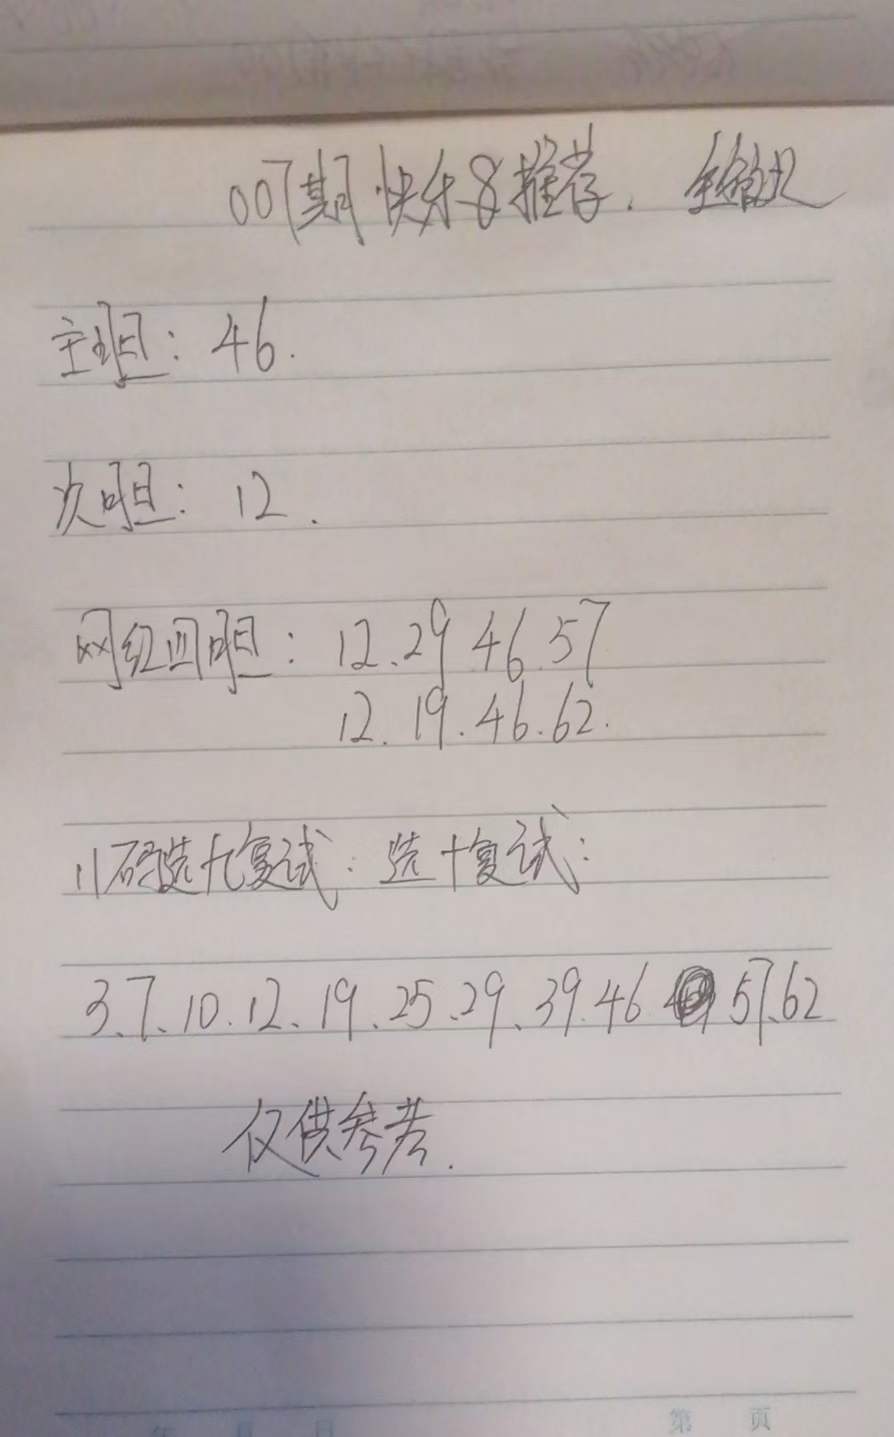 007期快乐8推荐.
主胆: 46.
次胆: 12.
网红四胆: 12.29 46.57
12.19.46.62.
11码选九复试: 选十复试:
3.7.10.12.19.25.29.39.46 57.62
仅供参考.
第 页